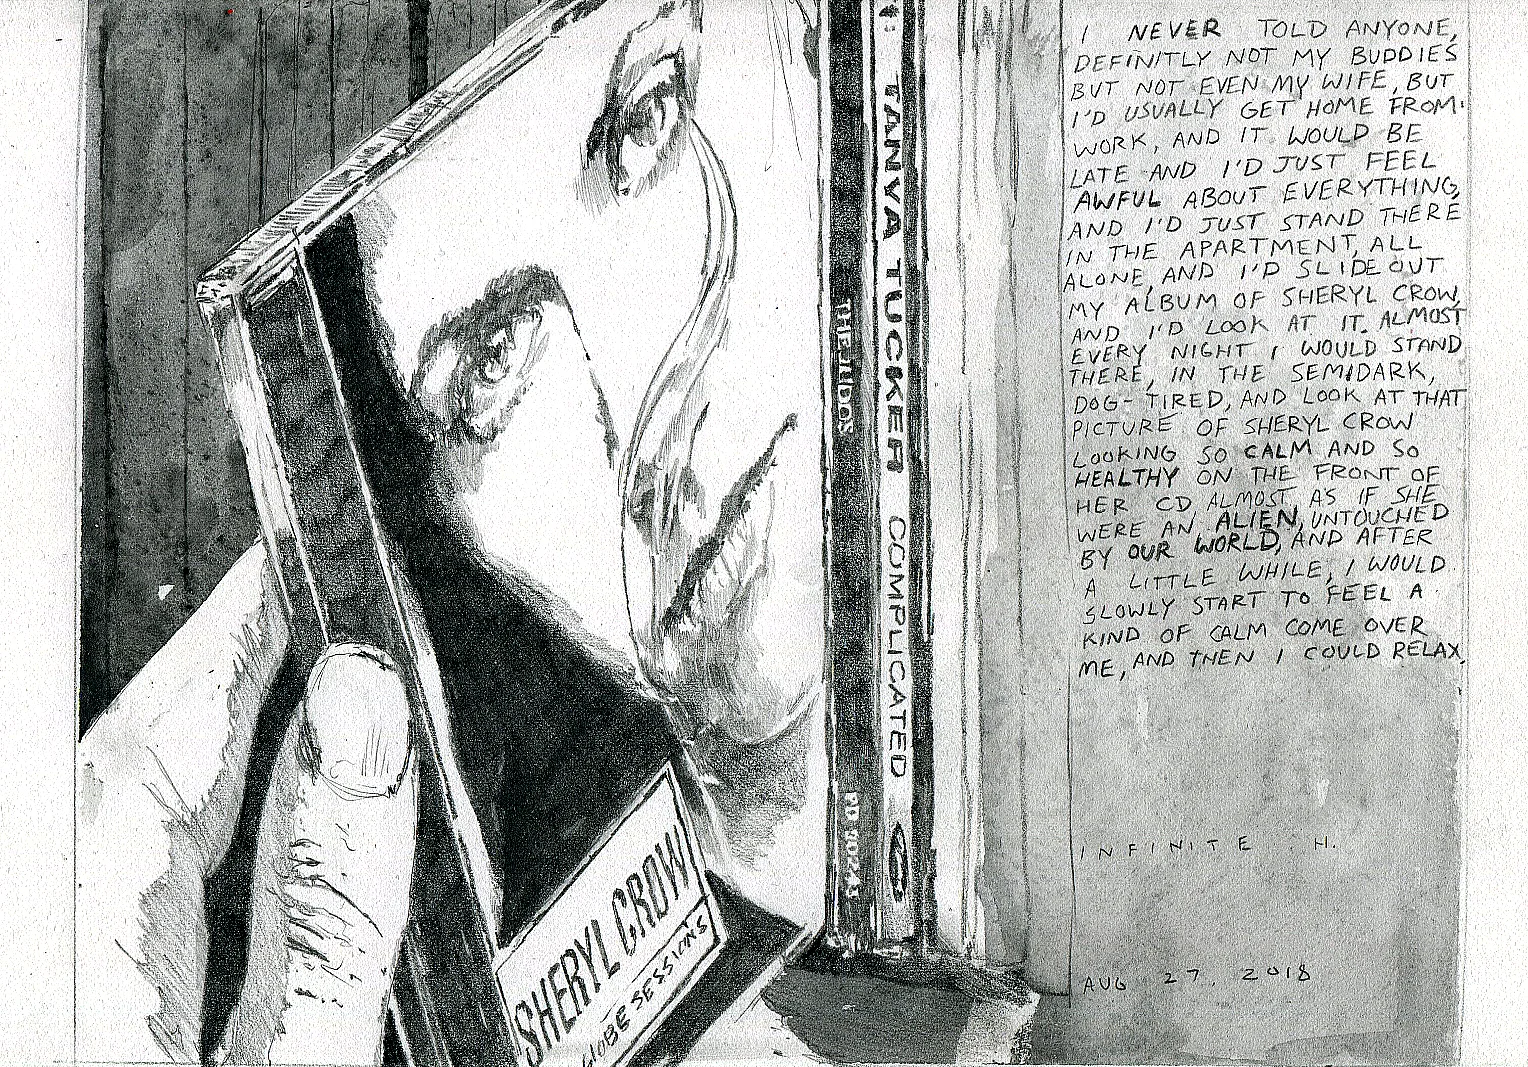 I NEVER TOLD ANYONE,
DEFINITLY NOT MY BUDDIES
BUT NOT EVEN MY WIFE, BUT
I'D USUALLY GET HOME FROM
WORK, AND IT WOULD BE
LATE AND I'D JUST FEEL
AWFUL ABOUT EVERYTHING,
AND I'D JUST STAND THERE
IN THE APARTMENT, ALL
ALONE, AND I'D SLIDE OUT
MY ALBUM OF SHERYL CROW,
AND I'D LOOK AT IT. ALMOST
EVERY NIGHT I WOULD STAND
THERE, IN THE SEMIDARK,
DOG-TIRED, AND LOOK AT THAT
PICTURE OF SHERYL CROW
LOOKING SO CALM AND SO
HEALTHY ON THE FRONT OF
HER CD, ALMOST AS IF SHE
WERE AN ALIEN, UNTOUCHED
BY OUR WORLD, AND AFTER
A LITTLE WHILE, I WOULD
SLOWLY START TO FEEL A
KIND OF CALM COME OVER
ME, AND THEN I COULD RELAX.
INFINITE H.
AUG 27, 2018
TANYA TUCKER COMPLICATED
THE JUDDS
SHERYL CROW
GLOBE SESSIONS